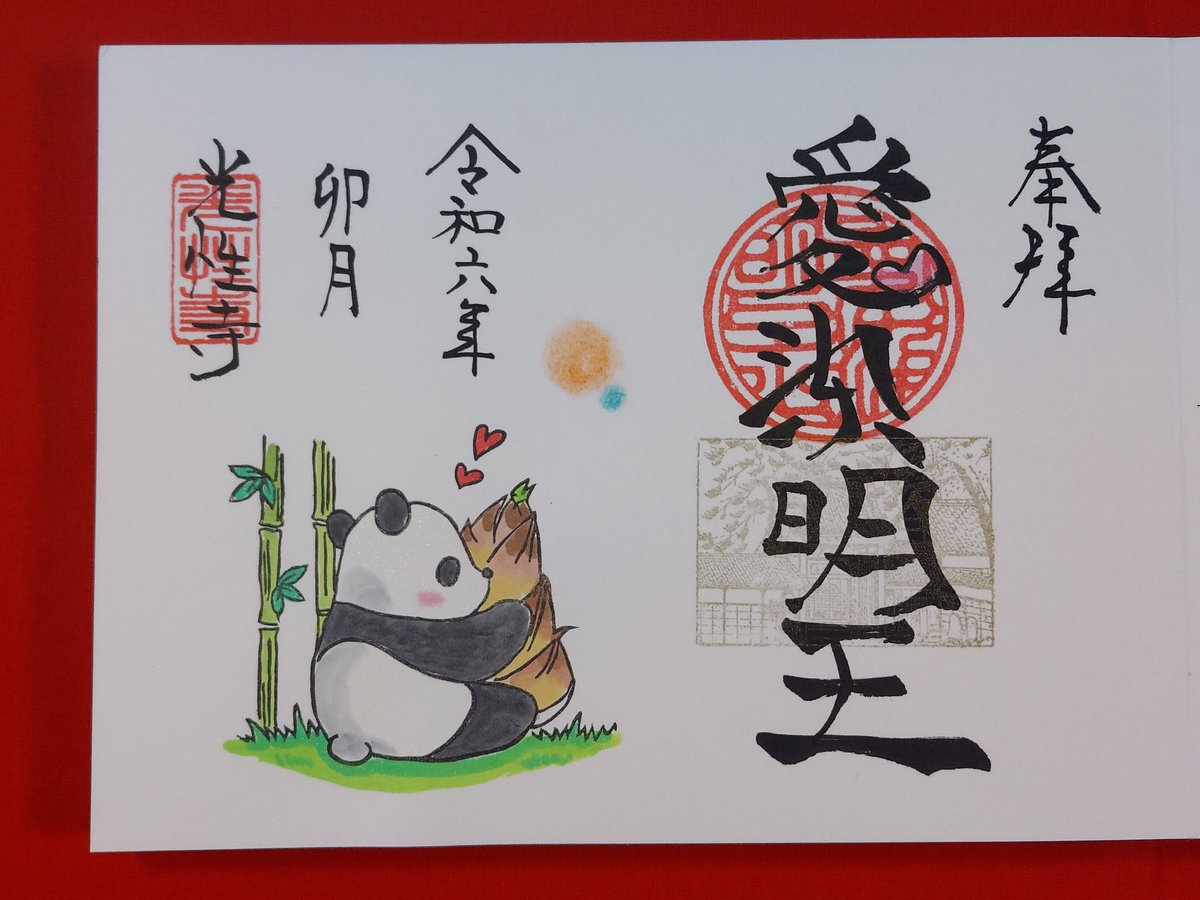 奉拝
愛染明王
令和六年
卯月
光性寺